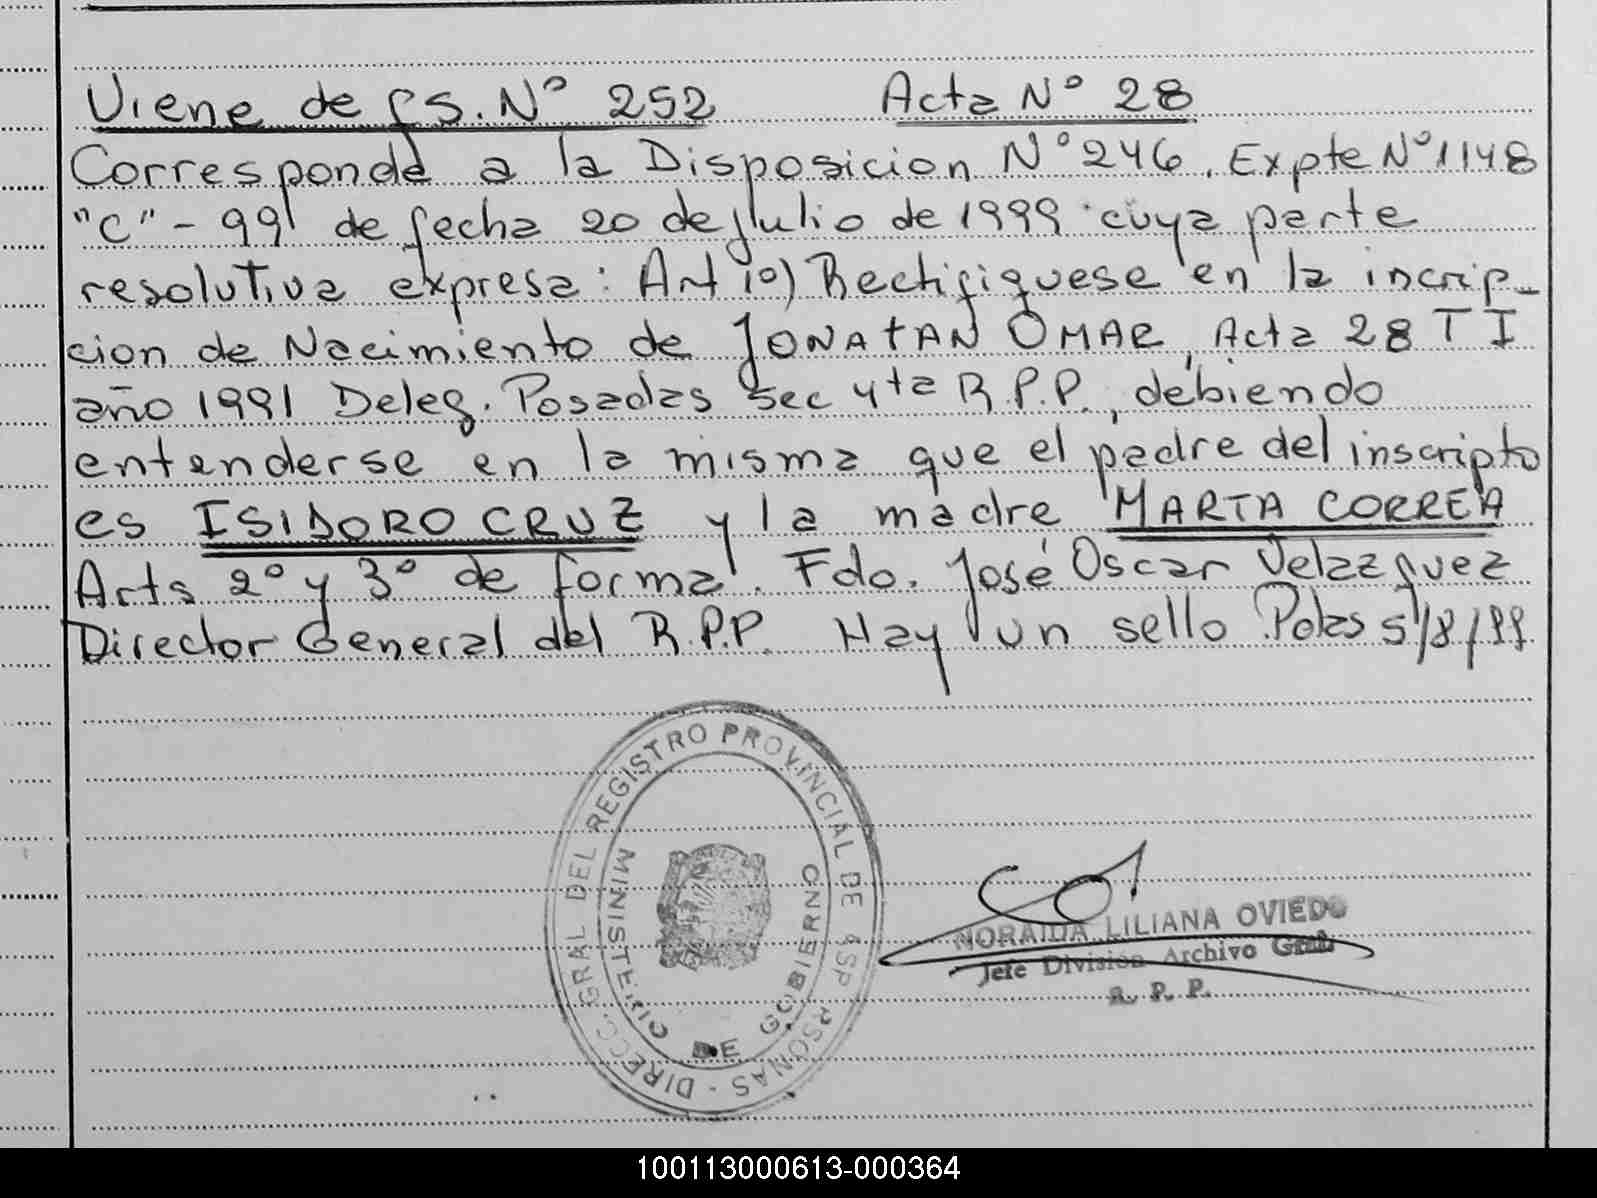 Viene de fs. Nº 252 Acta Nº 28
Corresponde a la Disposicion Nº 246. Expte Nº 1148
"C" - 99 de fecha 20 de Julio de 1999 cuya parte
resolutiva expresa: Art 1º) Rectifiquese en la inscrip-
cion de Nacimiento de JONATAN OMAR, Acta 28 T I
año 1991 Deleg. Posadas Sec 4ta R.P.P., debiendo
entenderse en la misma que el padre del inscripto
es ISIDORO CRUZ y la madre MARTA CORREA
Arts 2º y 3º de forma. Fdo. José Oscar Velazquez
Director General del R.P.P. Hay un sello Pdas 5/8/99.
DIRECC. GRAL DEL REGISTRO PROVINCIAL DE LAS PERSONAS -
MINISTERIO DE GOBIERNO
NORAIDA LILIANA OVIEDO
Jefe División Archivo Gral.
R. P. P.
100113000613-000364